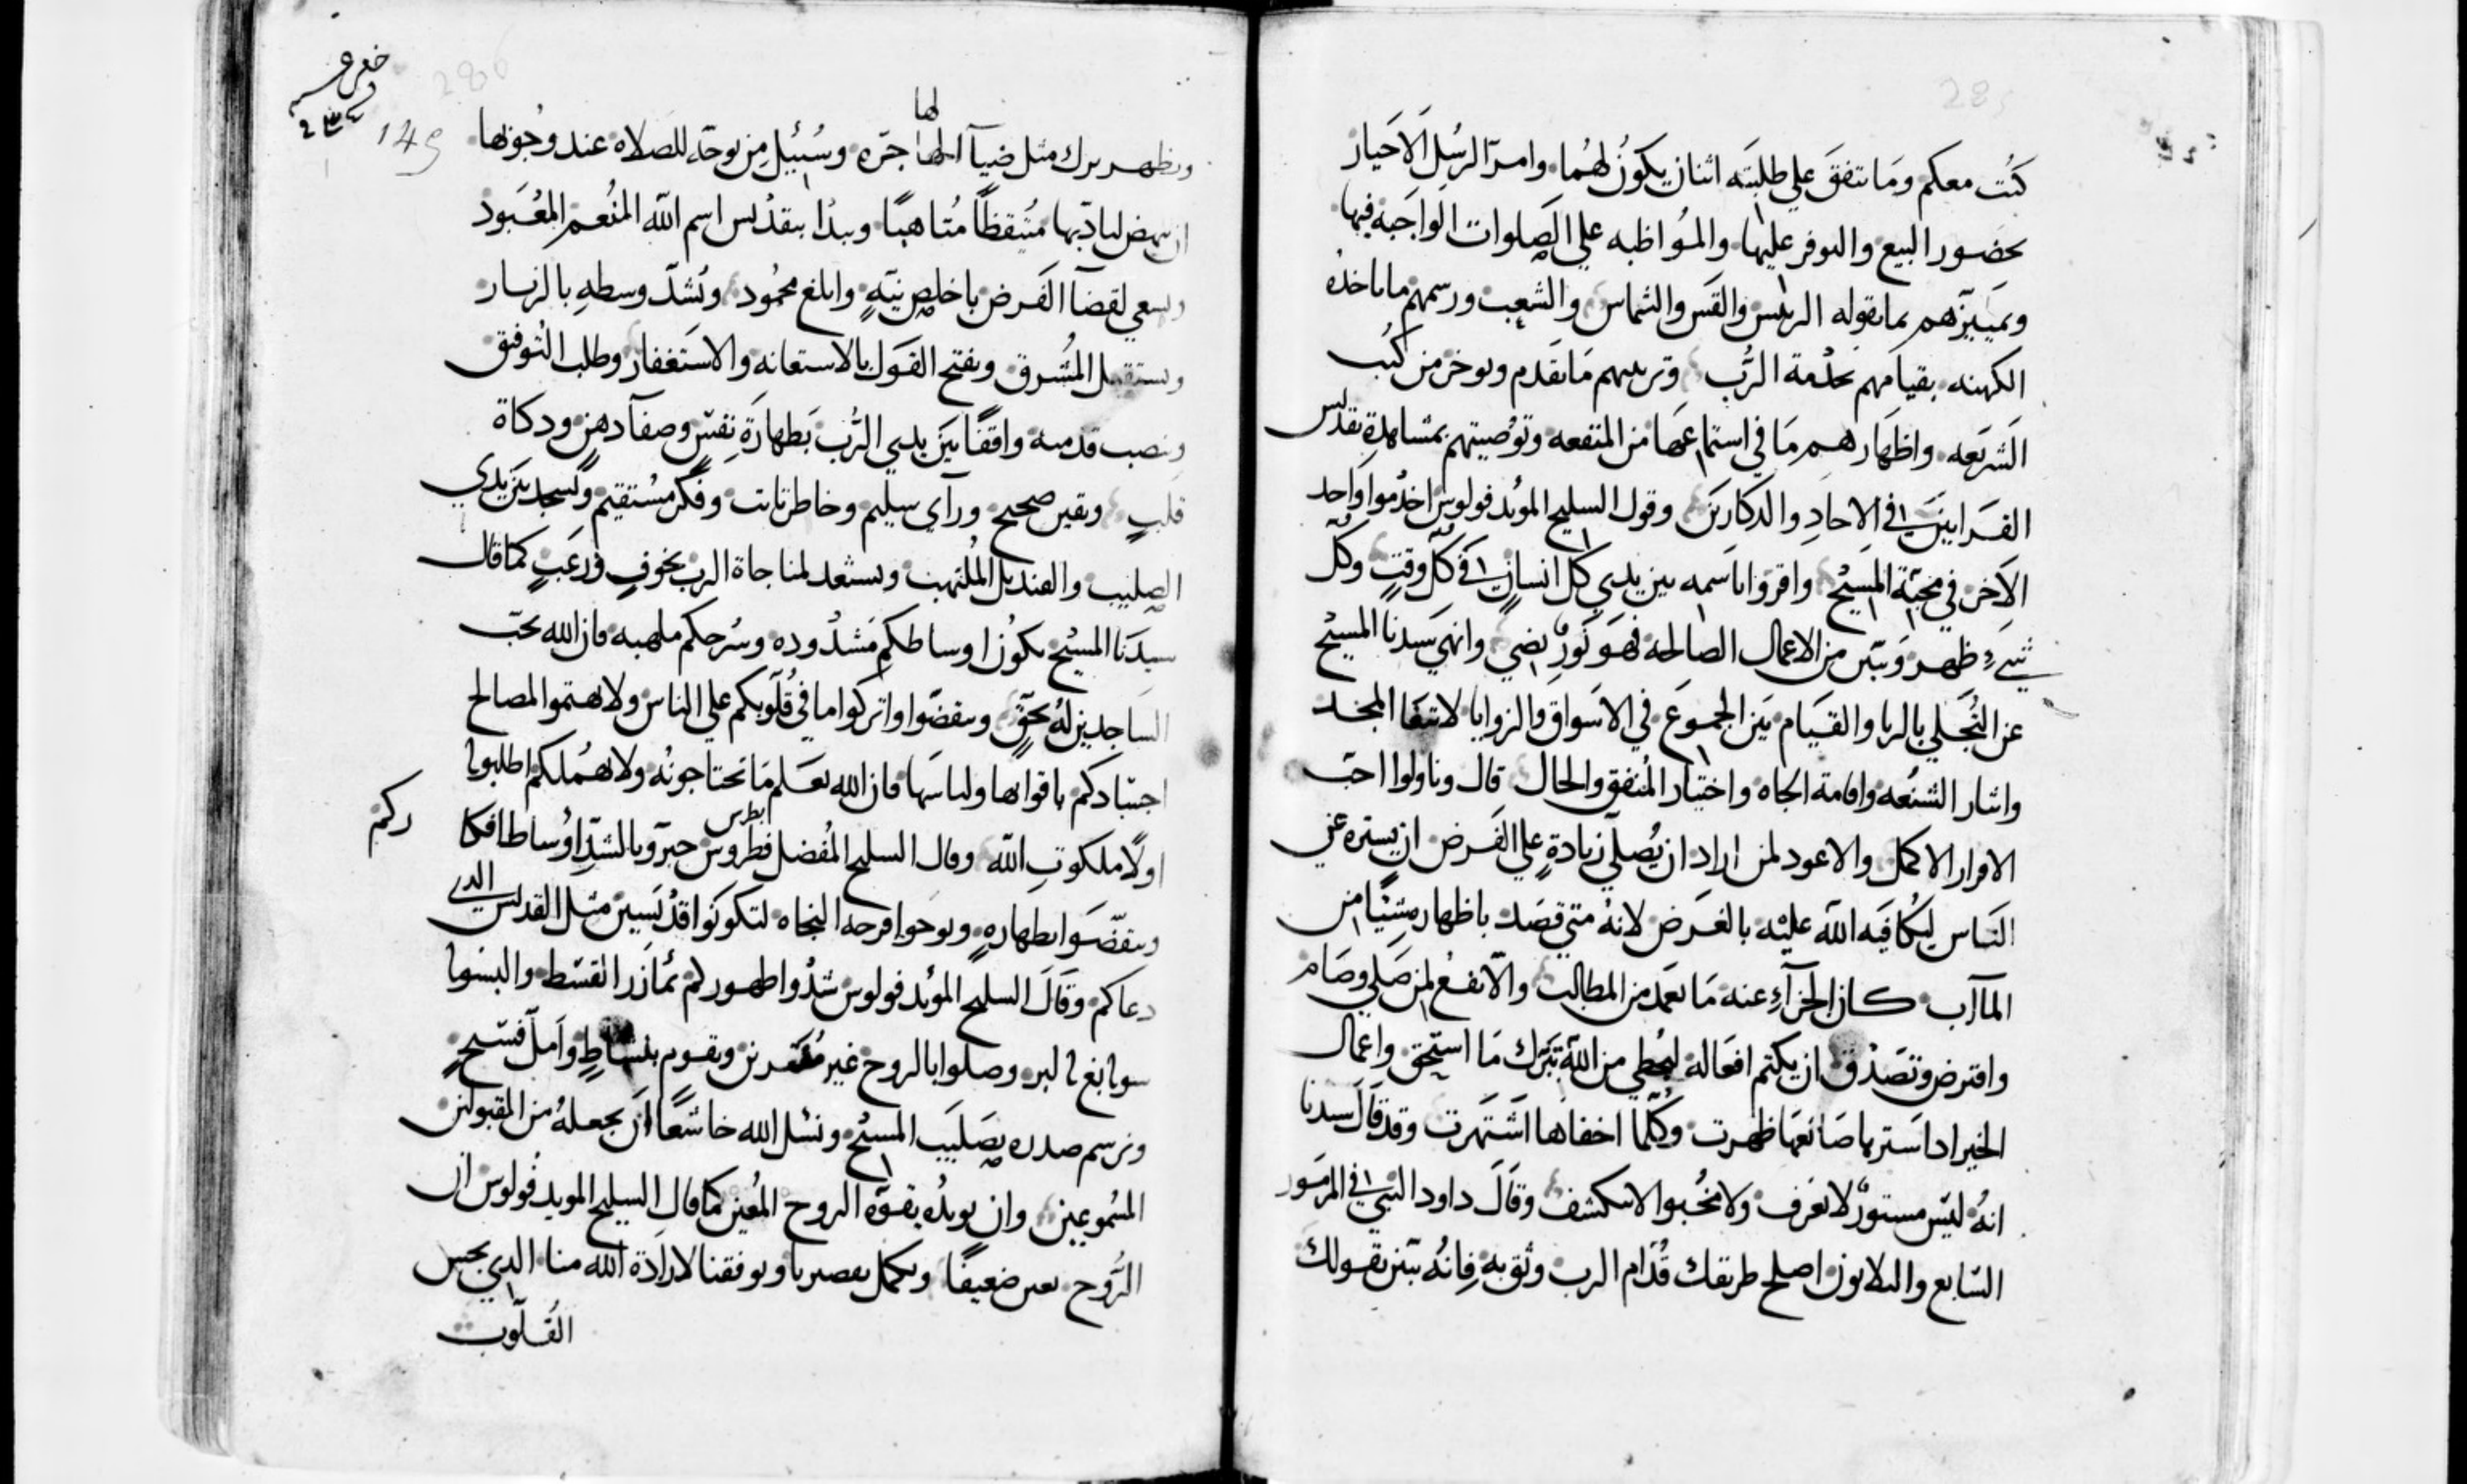 285
كنت معكم وما تتفق علي طلبته اثنان يكون لهما وامر الرسل الاخيار
بحضور البيع والتوفر عليها والمواظبه علي الصلوات الواجبه فيها
وتمييزهم بما تقوله الرئيس والقس والشماس والشعب ورسمهم ما ياخذه
الكهنه بقيامهم بخدمة الرب وترتيبهم ما تقدم ويوخر من كتب
الشريعه واظهارهم ما في استماعها من المنفعه وتوصيتهم بمشاهدة تقديس
القرابين في الاحاد والدكارين وقول السليح المويد فولوس اخدموا واحد
الاخر في محبة المسيح واقروا باسمه بين يدي كل انسان في كل وقت وكل
شيء ظهر وتبين من الاعمال الصالحه فهو نور يضي وانهي سيدنا المسيح
عن التجلي بالريا والقيام بين الجموع في الاسواق والزوايا لابتغا المجد
وايثار الشنعه واقامة الجاه واختيار المنفق والحال قال وناولوا احب
الاقرار الاكمل والاعود لمن اراد ان يصلي زيادة علي الفرض ان يستره عن
الناس ليكافيه الله عليه بالغرض لانه متي قصد باظهاره شيئا من
المآرب كان الجزآء عنه ما تعمد من المطالب والانفع لمن صلي وصام
وافترض وتصدق ان يكتم افعاله ليحظي من الله تبرك ما استحق واعمال
الخير اذا استرها صانعها ظهرت وكلما اخفاها اشتهرت وقد قال سيدنا
انه ليس مستور لا يعرف ولا مخبوا لا ينكشف وقال داود النبي في المزمور
السابع والثلاثون اصلح طريقك قدام الرب وثق به فانه يبين تقولك
286
149
لها
ويظهر برك مثل ضيآ الهاجره وسبيل من توجه للصلاه عند وجوبها
ان ينهض لباديها متيقظا متاهبا ويبدا بتقديس اسم الله المنعم المعبود
ويسعي لقضآ الفرض باخلص نيته وابلغ مجهود وتشد وسطه بالزنار
ويستقبل المشرق ويفتح القول بالاستعانه والاستغفار وطلب التوفيق
وينصب قدميه واقفا بين يدي الرب بطهارة نفس وصفآ ذهن وذكاة
قلب ويقين صحيح ورآي سليم وخاطر ثابت وفكر مستقيم ويسجد بين يدي
الصليب والقنديل الملتهب ويستعد لمناجاة الرب بخوف ورعب كما قال
سيدنا المسيح تكون اوساطكم مشدوده وسرجكم ملهبه فان الله يحب
الساجدين له بحق وتيقضوا واتركوا ما في قلوبكم علي الناس ولا تهتموا لمصالح
اجسادكم باقواتها ولباسها فان الله يعلم ما تحتاجونه ولا يهملكم اطلبوا
اولا ملكوت الله وقال السليح المفضل فطروس بطرس جبروا بالشد اوساط افكا
ركم
وتيقضوا بطهارة وتوخوا فرحه النجاه لتكونوا قديسين مثل القديس الذي
دعاكم وقال السليح المويد فولوس شدوا ظهوركم بمآزر القسط والبسوا
سوابغ البر وصلوا بالروح غير مفكرين ويقوم بنشاط وامل فسيح
ويرسم صدره بصليب المسيح ونسل الله خاشعا ان يجعله من المقبولين
المسموعين وان يويده بقوة الروح المعين كما قال السليح المويد فولوس ان
الروح تعين ضعيفا وتكمل تقصيرنا ويوفقنا لارادة الله منا الذي يجس
القلوب